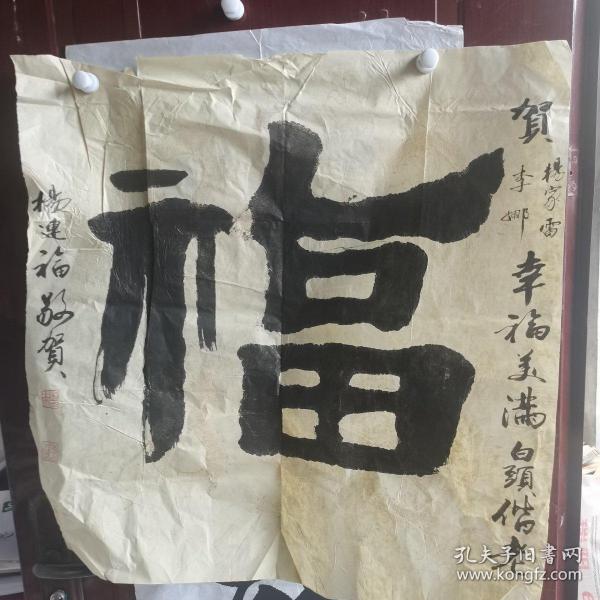 賀
楊家雷
李娜
幸福美满白頭偕老
福
楊連福敬賀
孔夫子旧书网
www.kongfz.com